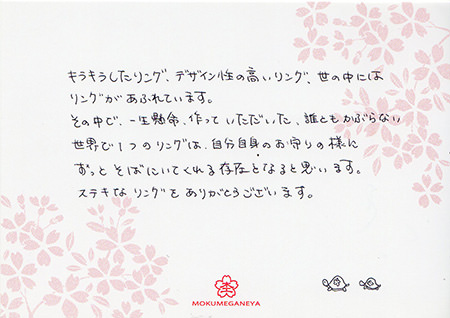 キラキラしたリング、デザイン性の高いリング、世の中には
リングがあふれています。
その中で、一生懸命、作っていただいた、誰ともかぶらない
世界で1つのリングは、自分自身のお守りの様に
ずっとそばにいてくれる存在となると思います。
ステキなリングをありがとうございます。
MOKUMEGANEYA